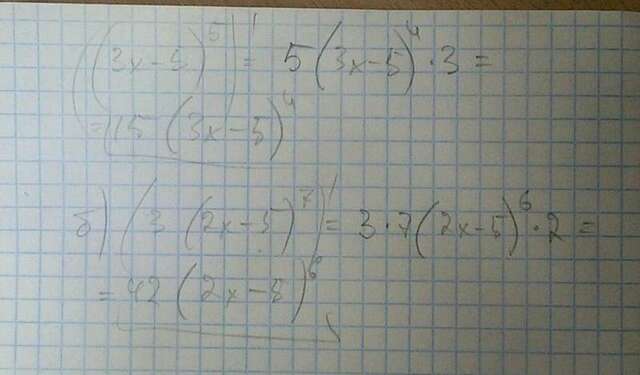 ((3x-5)^5)' = 5(3x-5)^4·3 =
= 15(3x-5)^4
б) (3(2x-5)^7)' = 3·7(2x-5)^6·2 =
= 42(2x-5)^6